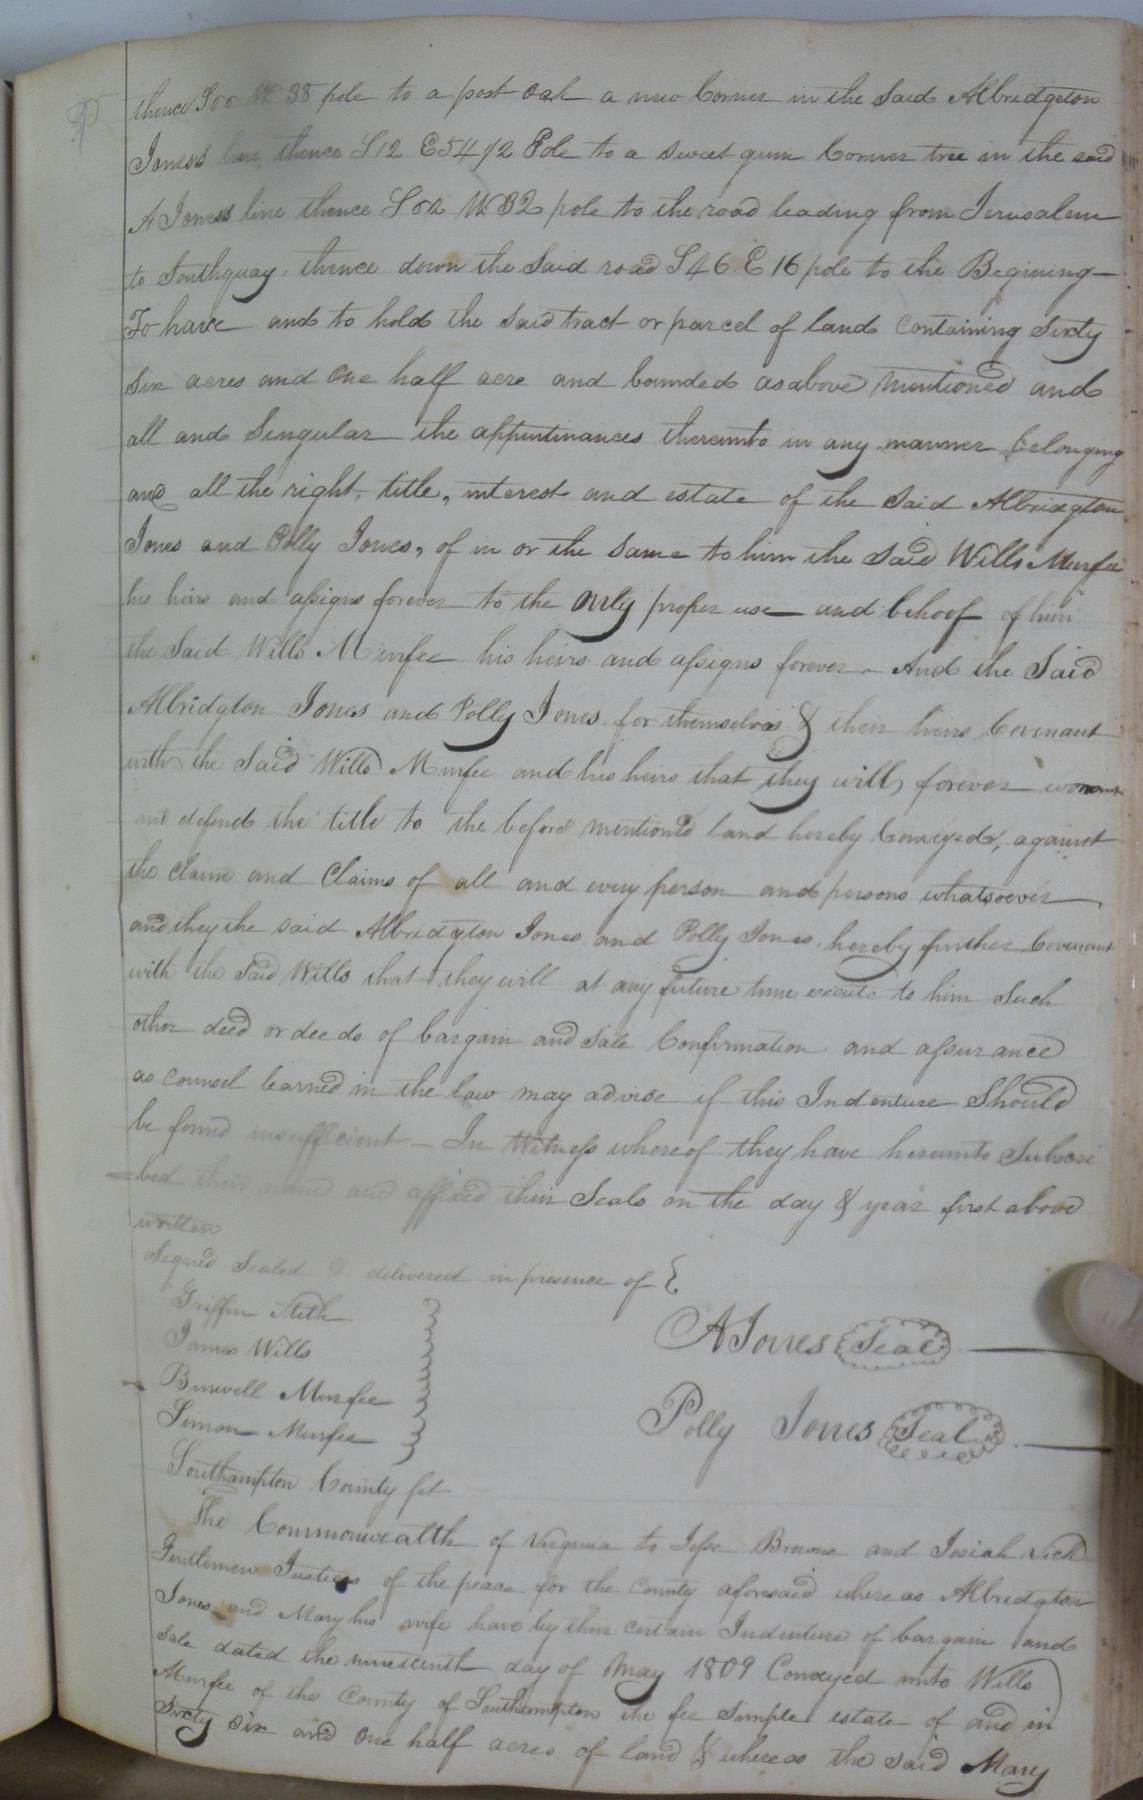 thence S W 38 pole to a post oak a new Corner in the Said Albridgeton
Joness line thence S 12 E 54 1/2 Pole to a sweet gum Corner tree in the said
A Joness line thence S W 32 pole to the road leading from Jerusalem
to Southquay. thence down the Said road S 46 E 16 pole to the Begining—
To have and to hold the Said tract or parcel of land Containing Sixty
Six acres and One half acre and bounded as above mentioned and
all and Singular the appurtinances thereunto in any manner belonging
and all the right, title, interest and estate of the Said Albridgton
Jones and Polly Jones, of in or the same to him the Said Wills Murfee
his heirs and assigns forever to the only proper use and behoof of him
the Said Wills Murfee his heirs and assigns forever - And the Said
Albridgton Jones and Polly Jones for themselves & their heirs Covenant
with the Said Wills Murfee and his heirs that they will forever warrant
and defend the title to the before mentioned land hereby Conveyed, against
the claim and Claims of all and every person and persons whatsoever
and they the said Albridgton Jones and Polly Jones hereby further Covenant
with the Said Wills that they will at any future time execute to him Such
other deed or deeds of bargain and Sale Confirmation and assurance
as counsel learned in the law may advise if this Indenture Should
be found insufficient — In Witness whereof they have hereunto Subscri
bed their name and affixed their Seals on the day & year first above
written
Signed Sealed & delivered in presence of {
Griffin Stith
James Wills
A Jones Seal
Burwell Murfee
Simon Murfee
Polly Jones Seal
Southampton County sct
The Commonwealth of Virginia to Jesse Browne and Josiah Vick
Gentlemen Justices of the peace for the County aforesaid whereas Albridgton
Jones and Mary his wife have by their certain Indenture of bargain and
Sale dated the nineteenth day of May 1809 Conveyed unto Wills
Murfee of the County of Southampton the fee Simple estate of and in
Sixty Six and One half acres of land & whereas the said Mary